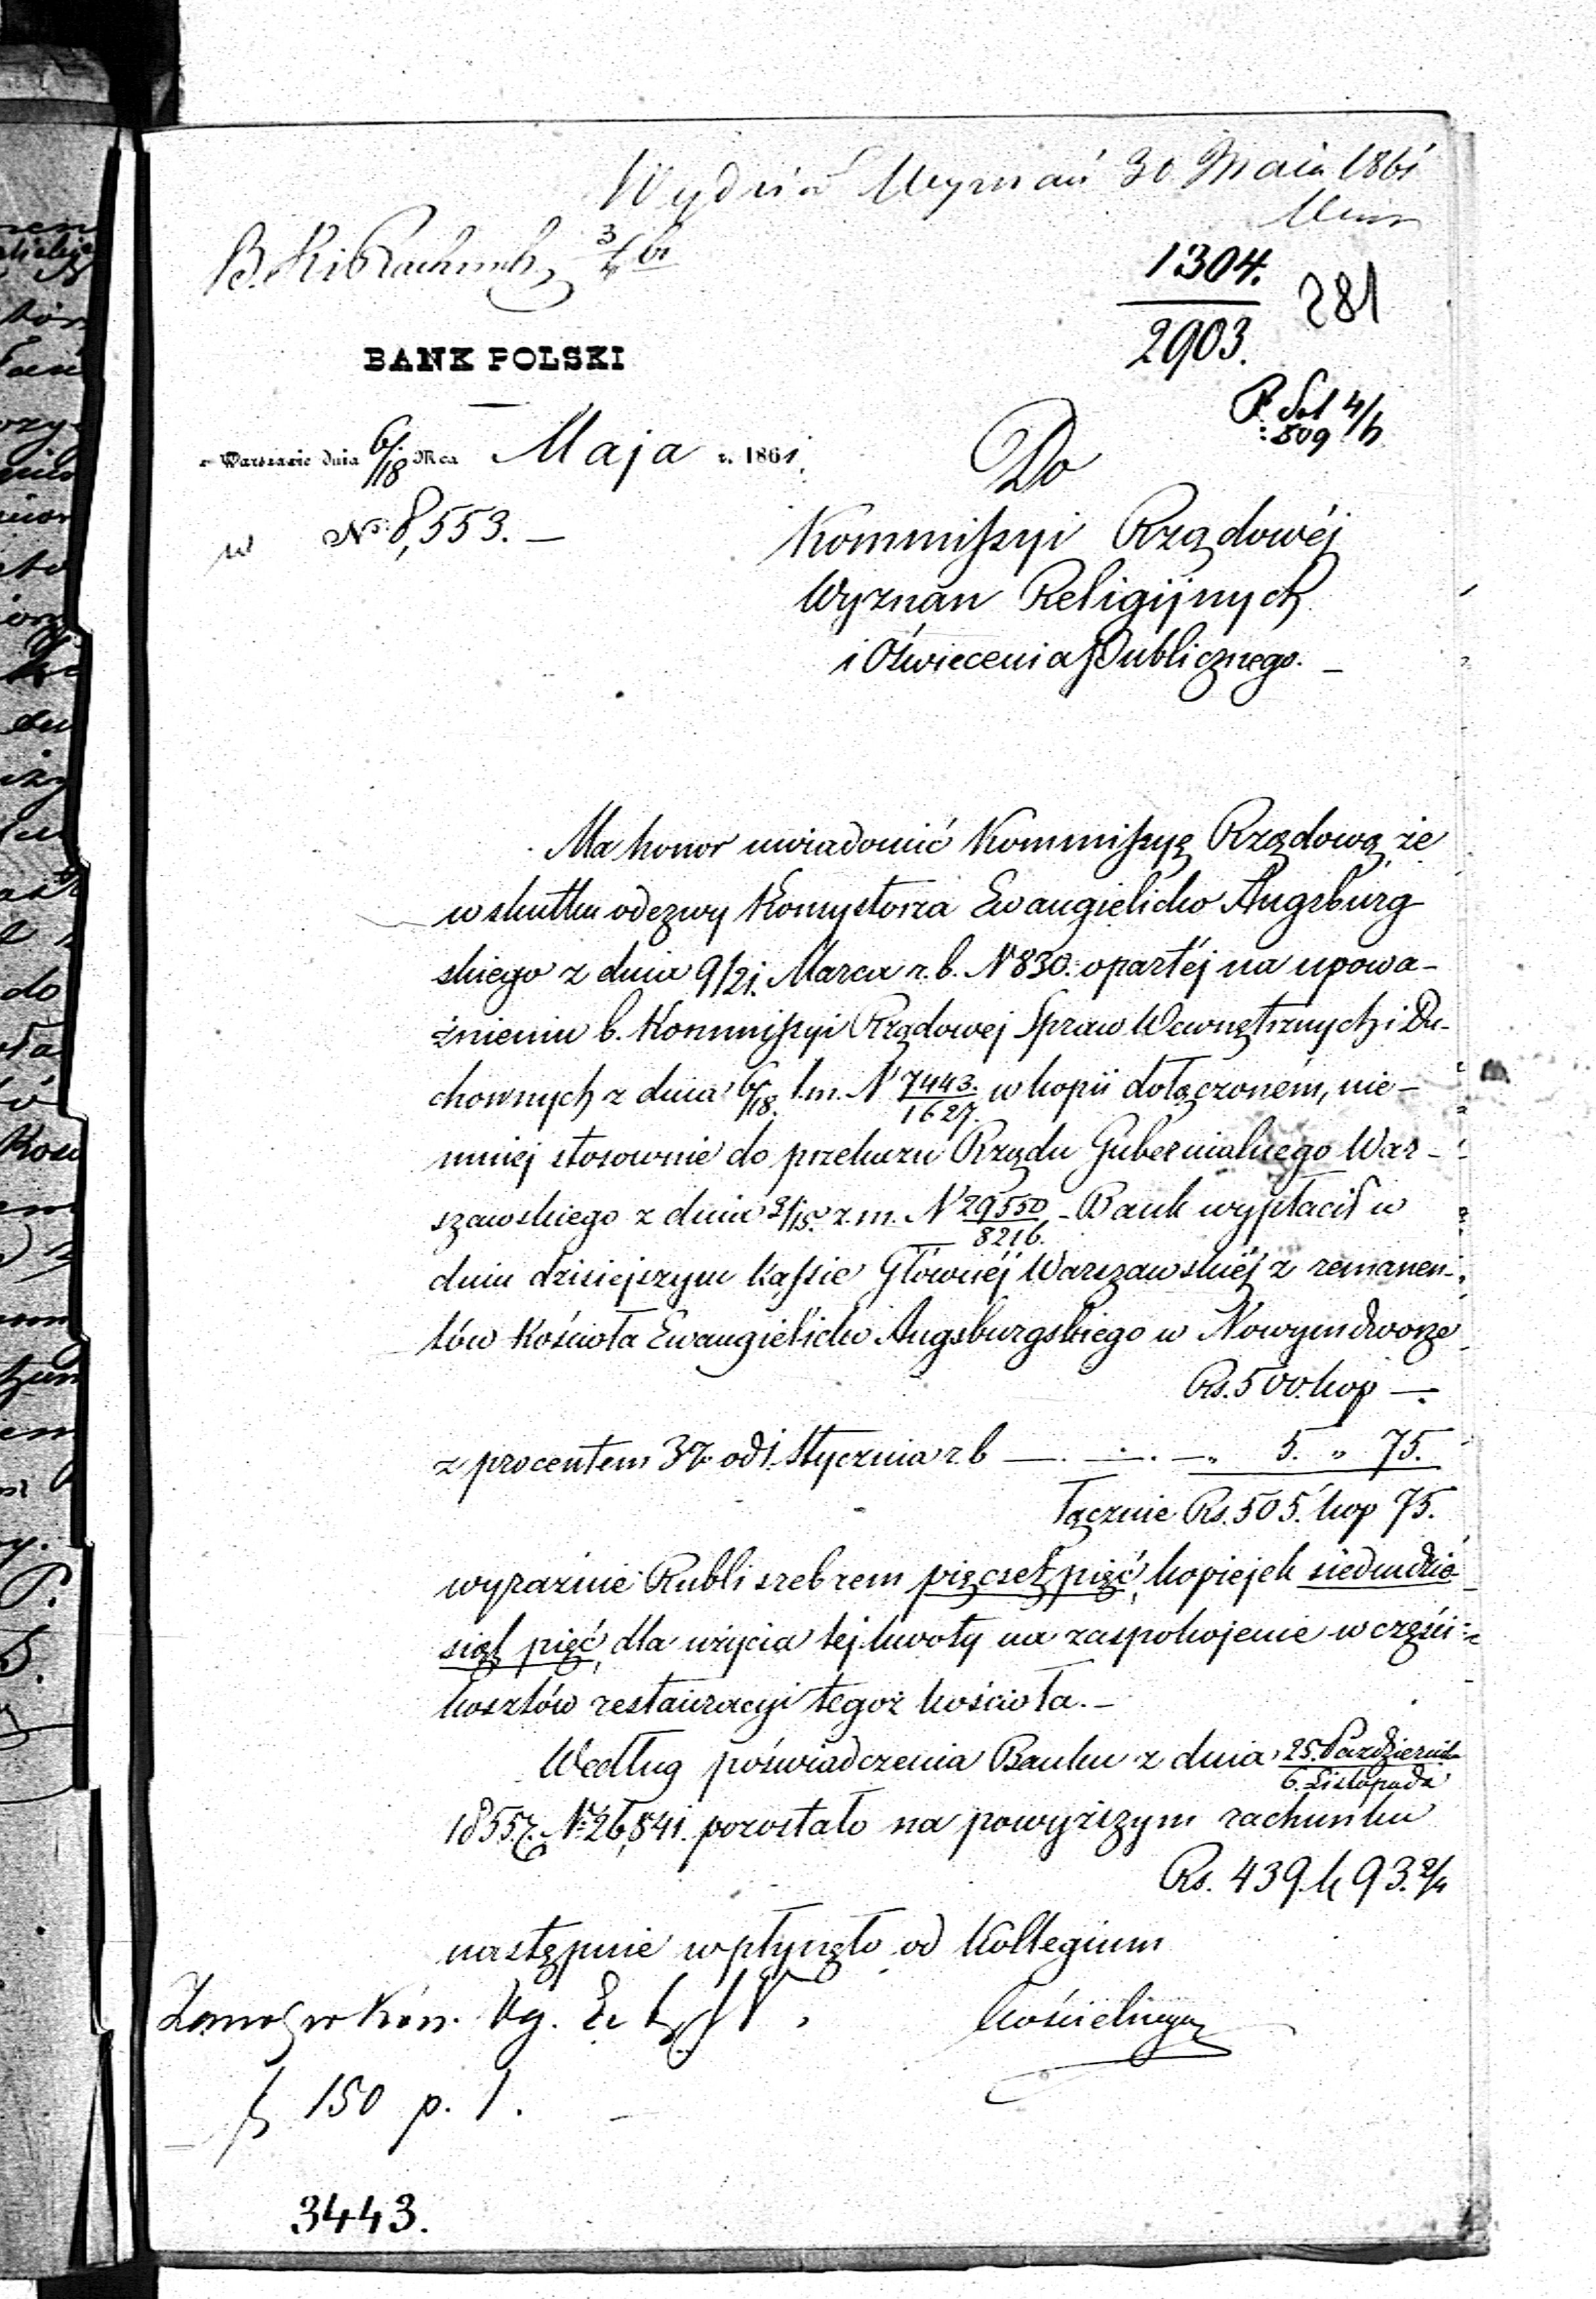 Wydział Wyznań 30 Maia 1861
1304.
2903.
281
BANK POLSKI
w Warszawie dnia 6/18 Mca Maja r. 1861.
No. 8,553. –
Do
Kommissyi Rządowéj
Wyznań Religijnych
i Oświecenia Publicznego. –
Ma honor uwiadomić Kommissyę Rządową, że
w skutku odezwy Konsystorza Ewangielicko Augsburg
skiego z dnia 9/21. Marca r. b. N 830. opartéj na upowa–
żnieniu b. Kommissyi Rządowej Spraw Wewnętrznych i Du–
chownych z dnia 6/18. t. m. N 7443./1627. w kopii dołączoném, nie–
mniej stosownie do przekazu Rządu Gubernialnego War–
szawskiego z dnia 3/15. z. m. N 29550/8216. – Bank wypłacił w
dniu dzisiejszym Kassie Głównéj Warszawskiéj z remanen–
tów Kościoła Ewangielicko Augsburgskiego w Nowymdworze
Rs. 500. kop —
z procentem 3% od 1. Stycznia r. b — . — . — „ 5. „ 75.
Łącznie Rs. 505. kop 75.
wyraźnie Rubli srebrem pięćset pięć, kopiejek siedmdzie
siąt pięć, dla użycia tej kwoty na zaspokojenie w części
kosztów restauracyi tegoż kościoła. –
Według poświadczenia Banku z dnia 25. Październik/6. Listopada
1855 r. No. 26,841. pozostało na powyższym rachunku
Rs. 439. k 93. 2/4
następnie wpłynęło od Kollegium
Kościelnego
150 p. 1.
3443.